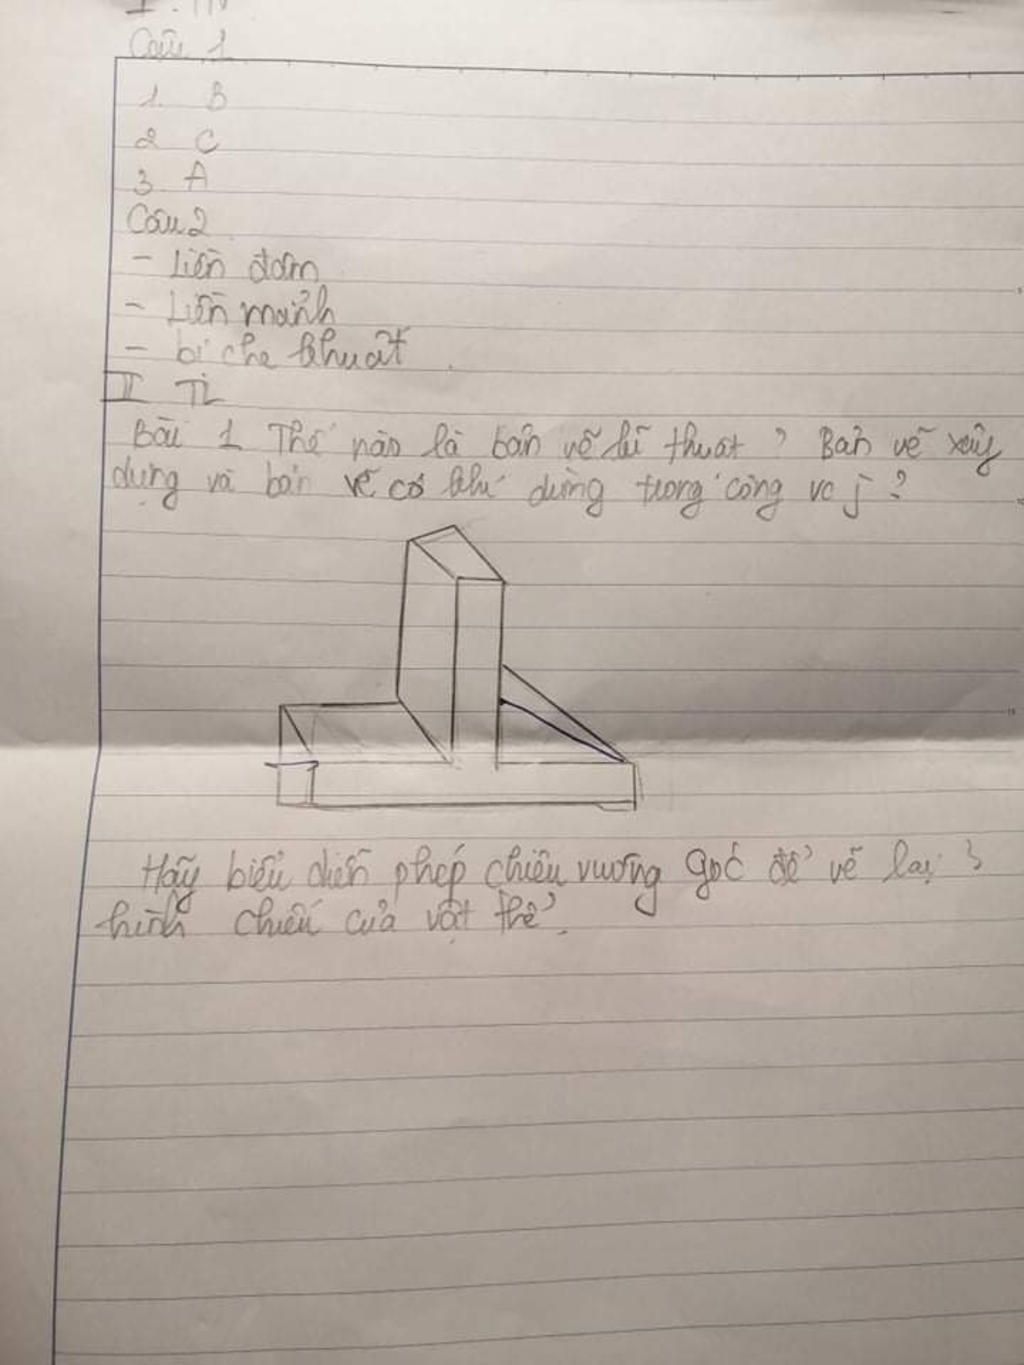 I. TN
Câu 1
1. B
2 C
3 A
Câu 2
- Liền đậm
- Liền mảnh
- bị che khuất
II TL
Bài 1 Thế nào là bản vẽ kĩ thuật ? Bản vẽ xây
dựng và bản vẽ cơ khí dùng trong công vc j ?
Hãy biểu diễn phép chiếu vuông góc để vẽ lại 3
hình chiếu của vật thể.